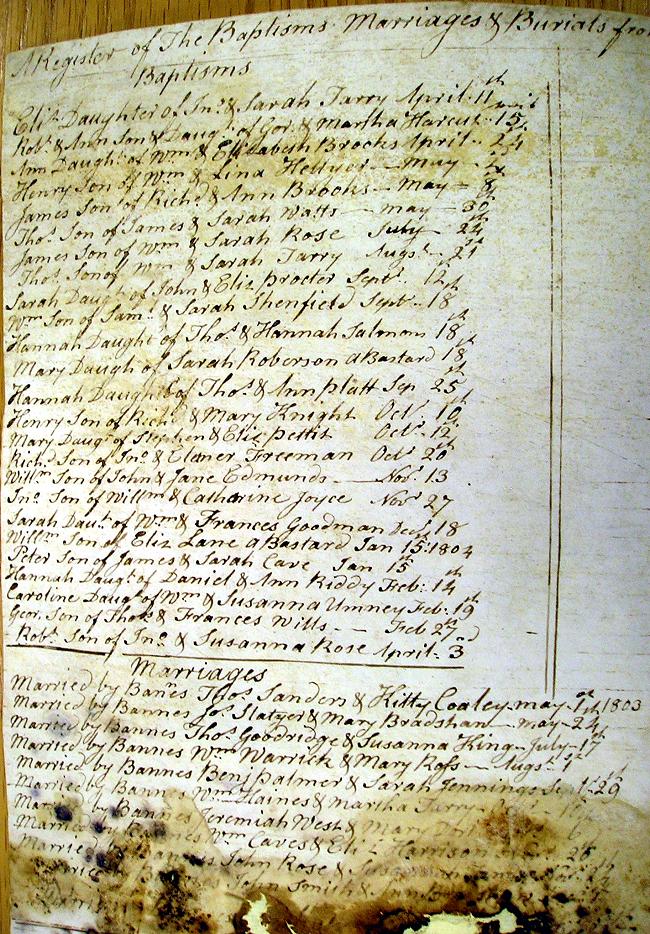 A Register of The Baptisms Marriages & Burials from
Baptisms
Eliz. Daughter of Jno. & Sarah Tarry April 11th
Robt. & Ann Son & Daugr. of Geo. & Martha Harcut 15
Ann Daught. of Wm & Elizabeth Brooks April 24
Henry Son of Wm & Lina Hellyer May
James Son of Richd & Ann Brooks May 8
Thos. Son of James & Sarah Watts may 30
James Son of Wm & Sarah Rose July 24
Thos. Son of Wm & Sarah Tarry Augst. 21
Sarah Daught. of John & Eliz Procter Sept. 12th
Wm Son of Saml. & Sarah Shenfield Sept. 18th
Hannah Daught of Thos. & Hannah Salmons 18th
Mary Daugh of Sarah Roberson a Bastard 18th
Hannah Daught of Thos. & Ann Platt Sep 25th
Henry Son of Richd & Mary Knight Octr. 10th
Mary Daugt of Stephen & Eliz Pettit Octr. 12th
Richd. Son of Jno. & Elener Freeman Octr 20th
Willm Son of John & Jane Edmunds Novr. 13
Jno. Son of Willm & Catharine Joyce Novr 27
Sarah Daut. of Wm & Frances Goodman Decr. 18
Willm Son of Eliz Lane a Bastard Jan 15: 1804
Peter Son of James & Sarah Cave Jan 15th
Hannah Daugt of Daniel & Ann Kiddy Feb: 14th
Caroline Daugt of Wm & Susanna Umney Feb: 19th
Geor. Son of Thos. & Frances Wills Feb 27th
Robt. Son of Jno. & Susanna Rose April 3d
Marriages
Married by Banes Thos. Sanders & Kitty Coaley may 1st 1803
Married by Bannes Jos. Slatyer & Mary Bradshaw may 24th
Married by Bannes Thos. Goodridge & Susanna King July 17th
Married by Bannes Wm Warrick & Mary Ross Augst. 1st
Married by Bannes Benj Palmer & Sarah Jennings 29th
Married by Bannes Wm Haines & Martha Tarry
Bannes Jeremiah West & Mary
Married Bannes Wm Caves & Eliz Harrison 26
Married John Rose &
Married John Smith &